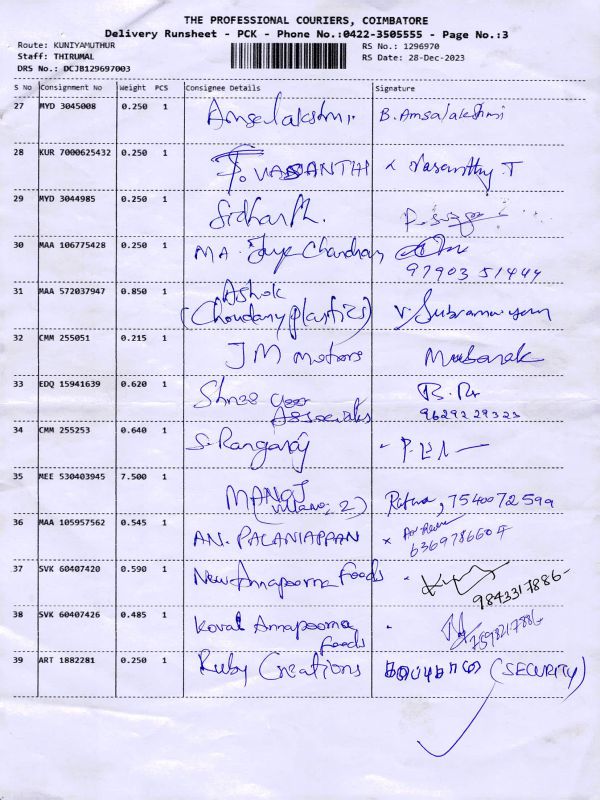 THE PROFESSIONAL COURIERS, COIMBATORE
Delivery Runsheet - PCK - Phone No.:0422-3505555 - Page No.:3
Route: KUNIYAMUTHUR
RS No.: 1296970
Staff: THIRUMAL
RS Date: 28-Dec-2023
DRS No.: DCJB129697003
S No Consignment No Weight PCS Consignee Details Signature
27 MYD 3045008 0.250 1 Amsalakshmi B. Amsalakshmi
28 KUR 7000625432 0.250 1 T. VASANTHI x Vasanthy. T
29 MYD 3044985 0.250 1 Sidharth.
30 MAA 106775428 0.250 1 MA. Chandran
97903 51444
31 MAA 572037947 0.850 1 Ashok
(Choudary plastics) V. Subramaniyam
32 CMM 255051 0.215 1 JM motors Mubarak
33 EDQ 15941639 0.620 1 Shree
Associates 9629229323
34 CMM 255253 0.640 1 S. Rangaraj
35 MEE 530403945 7.500 1 MANOJ
Ratna, 7540072599
36 MAA 105957562 0.545 1 AN. PALANIAPPAN x
6369786607
37 SVK 60407420 0.590 1 New Annapoorna Foods
9843317886-
38 SVK 60407426 0.485 1 Kovai Annapoorna
Foods 7598217886-
39 ART 1882281 0.250 1 Ruby Creations (SECURITY)